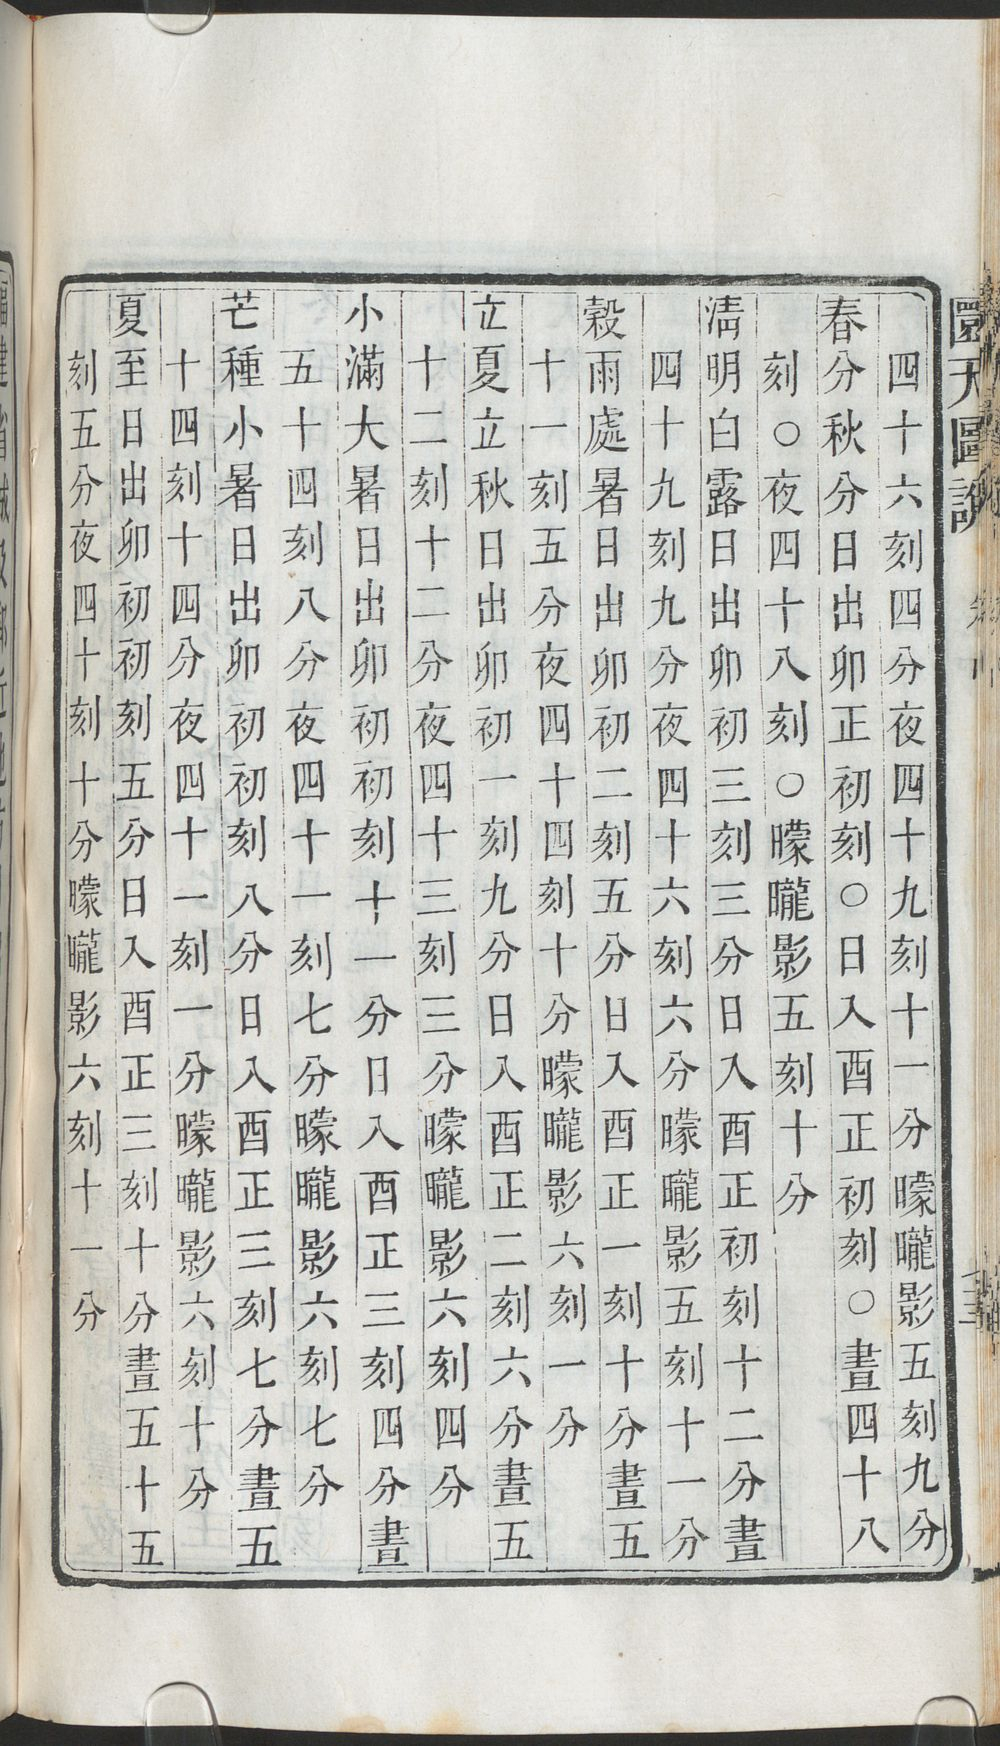 圜天圖說
四十六刻四分夜四十九刻十一分曚曨影五刻九分
春分秋分日出卯正初刻〇日入酉正初刻〇晝四十八
刻〇夜四十八刻〇曚曨影五刻十分
淸明白露日出卯初三刻三分日入酉正初刻十二分晝
四十九刻九分夜四十六刻六分曚曨影五刻十一分
穀雨處暑日出卯初二刻五分日入酉正一刻十分晝五
十一刻五分夜四十四刻十分曚曨影六刻一分
立夏立秋日出卯初一刻九分日入酉正二刻六分晝五
十二刻十二分夜四十三刻三分曚曨影六刻四分
小滿大暑日出卯初初刻十一分日入酉正三刻四分晝
五十四刻八分夜四十一刻七分曚曨影六刻七分
芒種小暑日出卯初初刻八分日入酉正三刻七分晝五
十四刻十四分夜四十一刻一分曚曨影六刻十分
夏至日出卯初初刻五分日入酉正三刻十分晝五十五
刻五分夜四十刻十分曚曨影六刻十一分